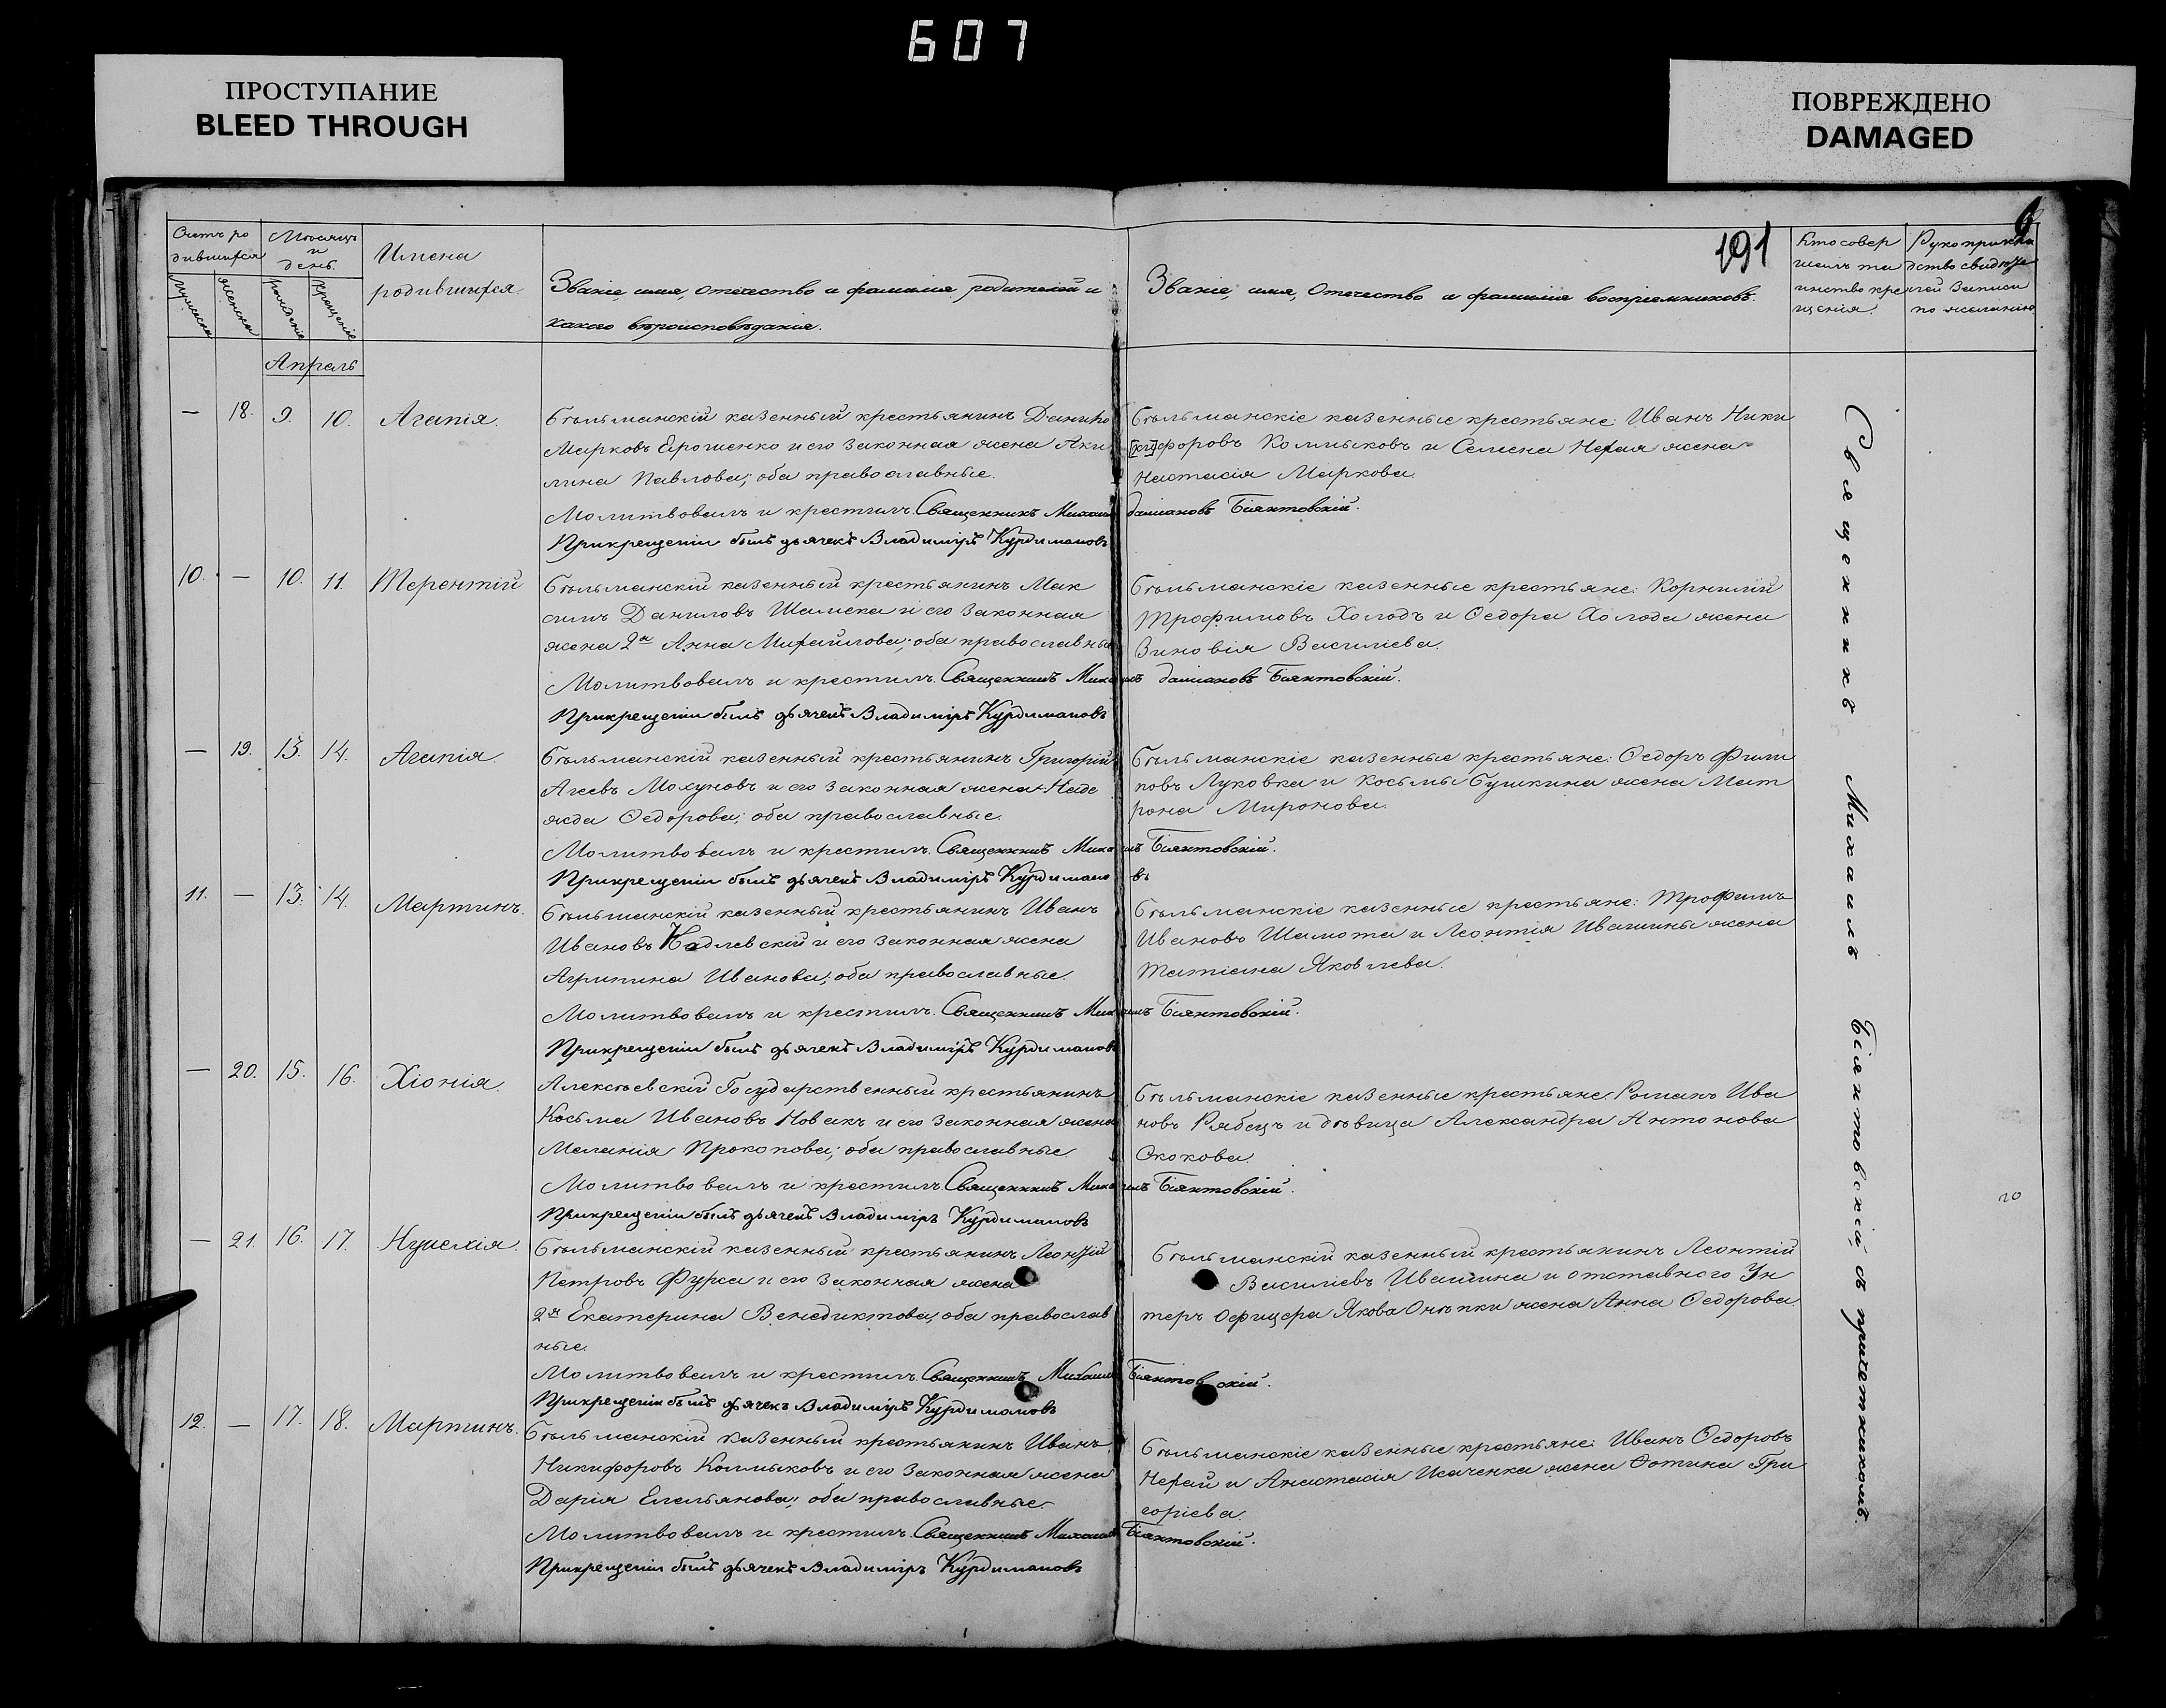 607
ПРОСТУПАНИЕ
BLEED THROUGH
ПОВРЕЖДЕНО
DAMAGED
191
6
Счетъ ро
дившихся
Мѣсяцъ
и
день.
Имена
родившихся.
Званіе, имя, отечество и фамилія родителей и
какого вѣроисповѣданія.
Званіе, имя, Отечество и фамилія воспріемниковъ.
Кто совер
шилъ та
инство кре
щенія.
Рукоприкла
дство свидѣте
лей записи
по желанію
мужеска
женска
рожденіе
крещеніе
Апрель
— 18. 9. 10. Агапія.
Бѣльманскій казенный крестьянинъ Данило
Марковъ Ерошенко и его законная жена Аки
лина Павлова; оба православные.
Молитвовалъ и крестилъ Священникъ Михаилъ Даміановъ Біянтовскій.
При крещеніи былъ дьячекъ Владиміръ Курдимановъ
Бѣльманскіе казенные крестьяне: Иванъ Ники
форовъ Колмыковъ и Семена Нехая жена
Настасія Маркова.
10. — 10. 11. Терентій
Бѣльманскій казенный крестьянинъ Мак
симъ Даниловъ Шамека и его законная
жена 2я Анна Михайлова; оба православные
Молитвовалъ и крестилъ Священникъ Михаилъ Даміановъ Біянтовскій.
При крещеніи былъ дьячекъ Владиміръ Курдимановъ
Бѣльманскіе казенные крестьяне: Корнилій
Трофимовъ Холодъ и Ѳедора Холода жена
Зиновія Василіева.
— 19. 13. 14. Агапія.
Бѣльманскій казенный крестьянинъ Григорій
Агеевъ Мохуновъ и его законная жена Наде
жда Ѳедорова; оба православные.
Молитвовалъ и крестилъ Священникъ Михаилъ Біянтовскій.
При крещеніи былъ дьячекъ Владиміръ Курдимановъ
Бѣльманскіе казенные крестьяне: Ѳедоръ Фили
повъ Луковка и Косьмы Бушкина жена Мат
рона Миронова.
11. — 13. 14. Мартинъ.
Бѣльманскій казенный крестьянинъ Иванъ
Ивановъ Кадлевскій и его законная жена
Агрипина Иванова; оба православные.
Молитвовалъ и крестилъ Священникъ Михаилъ Біянтовскій.
При крещеніи былъ дьячекъ Владиміръ Курдимановъ
Бѣльманскіе казенные крестьяне: Трофимъ
Ивановъ Шамота и Леонтія Ивашины жена
Татіана Яковлева.
— 20. 15. 16. Хіонія.
Алексѣевскій Государственный крестьянинъ
Косьма Ивановъ Новакъ и его законная жена
Меланія Прокопова; оба православные
Молитвовалъ и крестилъ Священникъ Михаилъ Біянтовскій.
При крещеніи былъ дьячекъ Владиміръ Курдимановъ
Бѣльманскіе казенные крестьяне: Романъ Ива
новъ Рябецъ и дѣвица Александра Антонова
Ококова.
— 21. 16. 17.
Бѣльманскій казенный крестьянинъ Леонтій
Петровъ Фурса и его законная жена
2я Екатерина Венедиктова; оба православ
ные.
Молитвовалъ и крестилъ Священникъ Михаилъ Біянтовскій.
При крещеніи былъ дьячекъ Владиміръ Курдимановъ
Бѣльманскій казенный крестьянинъ Леонтій
Василіевъ Ивашина и отставного Ун
теръ Офицера Якова жена Анна Ѳедорова.
12. — 17. 18. Мартинъ.
Бѣльманскій казенный крестьянинъ Иванъ
Никифоровъ Колмыковъ и его законная жена
Дарія Емельянова; оба православные.
Молитвовалъ и крестилъ Священникъ Михаилъ Біянтовскій.
При крещеніи былъ дьячекъ Владиміръ Курдимановъ
Бѣльманскіе казенные крестьяне: Иванъ Ѳедоровъ
Нехай и Анастасія Исаченка жена Фотина Гри
горіева.
Священникъ Михаилъ Біянтовскій съ причетникомъ.